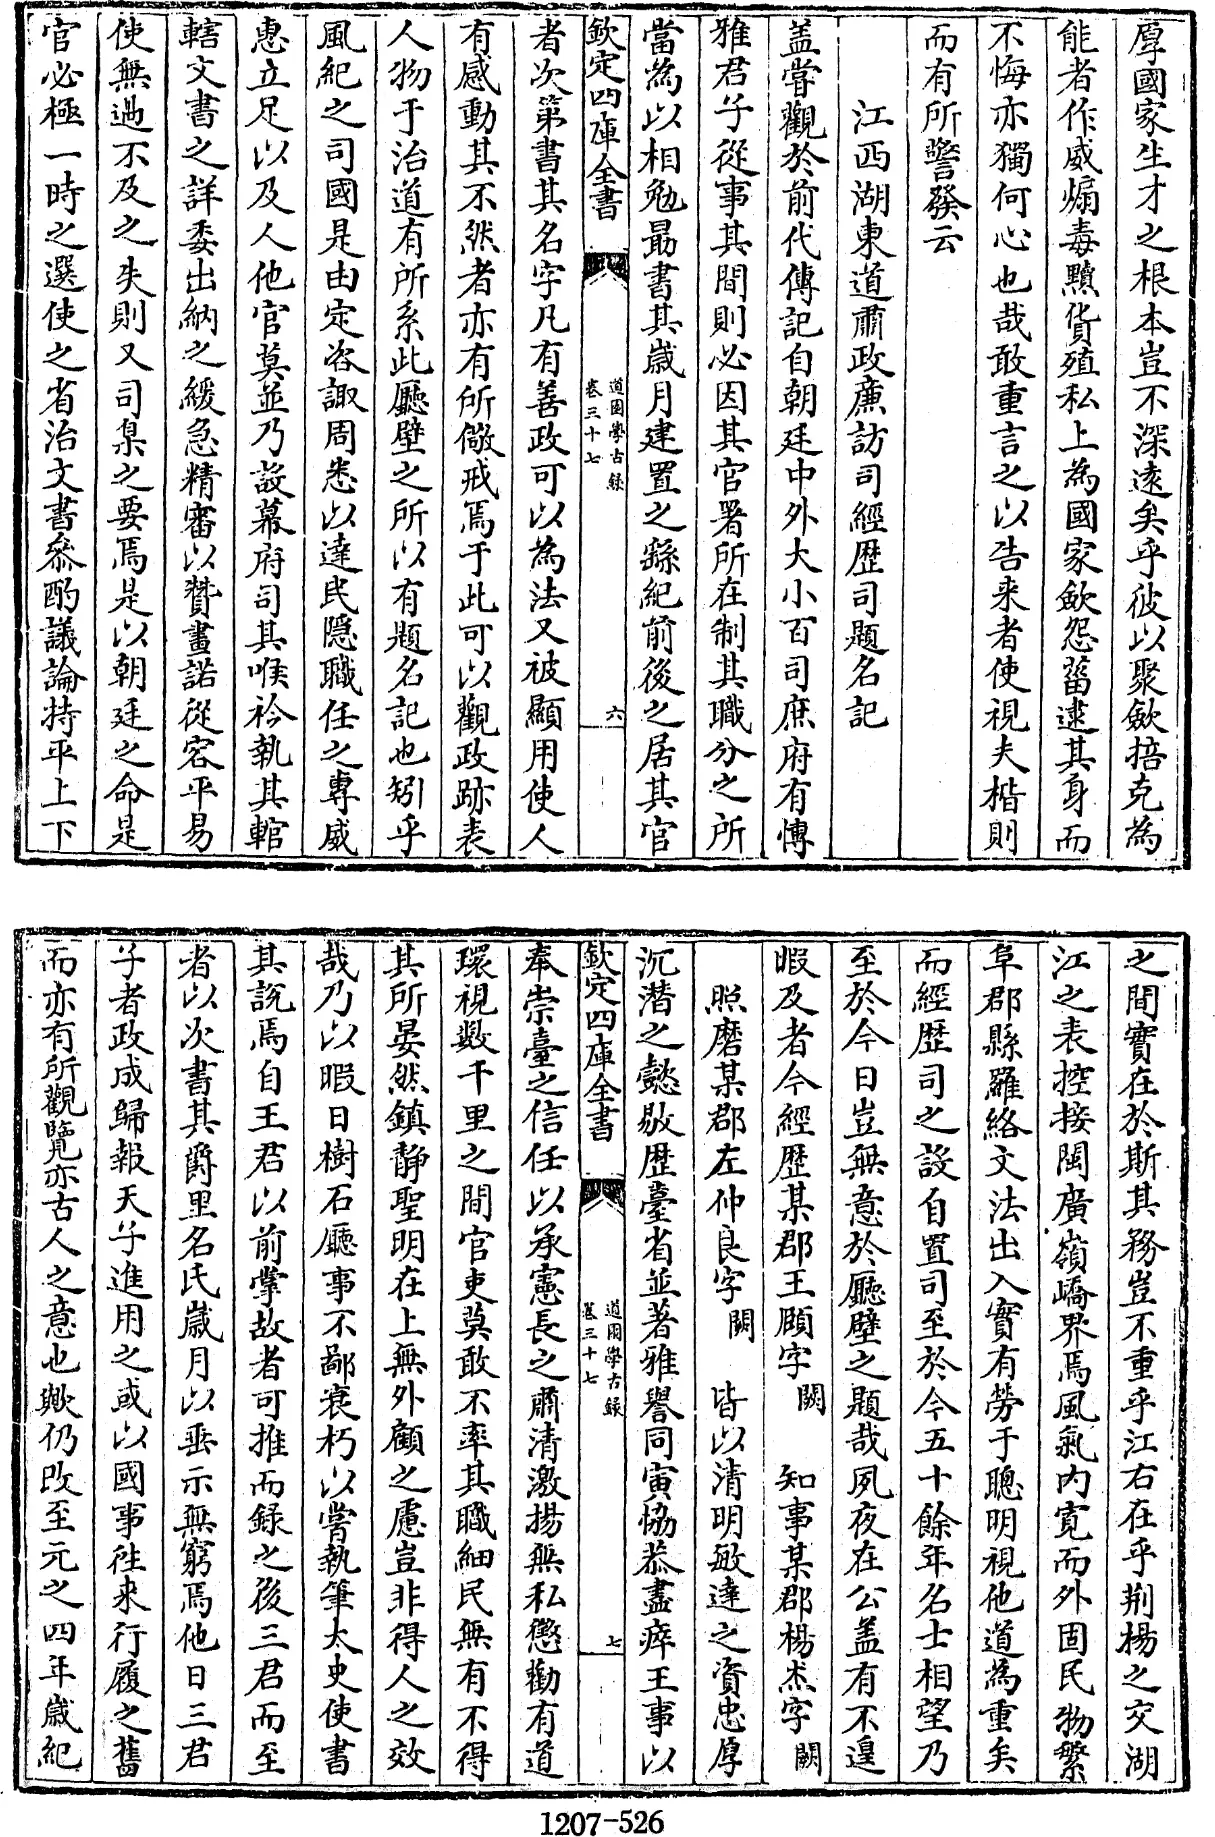 厚國家生才之根本豈不深逺矣乎彼以聚斂掊克為
能者作威煽毒黷貨殖私上為國家斂怨菑逮其身而
不悔亦獨何心也哉敢重言之以告来者使視夫楷則
而有所警發云
江西湖東道肅政廉訪司經歴司題名記
盖嘗觀於前代傳記自朝廷中外大小百司庶府有博
雅君子從事其間則必因其官署所在制其職分之所
當為以相勉朂書其嵗月建置之繇紀前後之居其官
欽定四庫全書
道園學古録
卷三十七
六
者次第書其名字凡有善政可以為法又被顯用使人
有感動其不然者亦有所儆戒焉于此可以觀政跡表
人物于治道有所系此廳壁之所以有題名記也矧乎
風紀之司國是由定咨諏周悉以達民隠職任之專威
惠立足以及人他官莫並乃設幕府司其喉衿執其輨
轄文書之詳委出納之緩急精審以贊畫諾從容平易
使無過不及之失則又司臬之要焉是以朝廷之命是
官必極一時之選使之省治文書叅酌議論持平上下
之間實在於斯其務豈不重乎江右在乎荆揚之交湖
江之表控接閩廣嶺嶠界焉風氣内寛而外固民物繁
阜郡縣羅絡文法出入實有勞于聰明視他道為重矣
而經歴司之設自置司至於今五十餘年名士相望乃
至於今日豈無意於廳壁之題哉夙夜在公盖有不遑
暇及者今經歴某郡王頤字闕知事某郡楊杰字闕
照磨某郡左仲良字闕皆以清明敏達之資忠厚
沉潛之懿敭歴臺省並著雅譽同寅恊恭盡瘁王事以
欽定四庫全書
道園學古録
卷三十七
七
奉崇臺之信任以承憲長之肅清激揚無私懲勸有道
環視数千里之間官吏莫敢不率其職細民無有不得
其所晏然鎮静聖明在上無外顧之慮豈非得人之效
哉乃以暇日樹石廳事不鄙衰朽以嘗執筆太史使書
其説焉自王君以前掌故者可推而録之後三君而至
者以次書其爵里名氏嵗月以垂示無窮焉他日三君
子者政成歸報天子進用之或以國事徃来行履之舊
而亦有所觀覽亦古人之意也歟仍改至元之四年嵗紀
1207-526